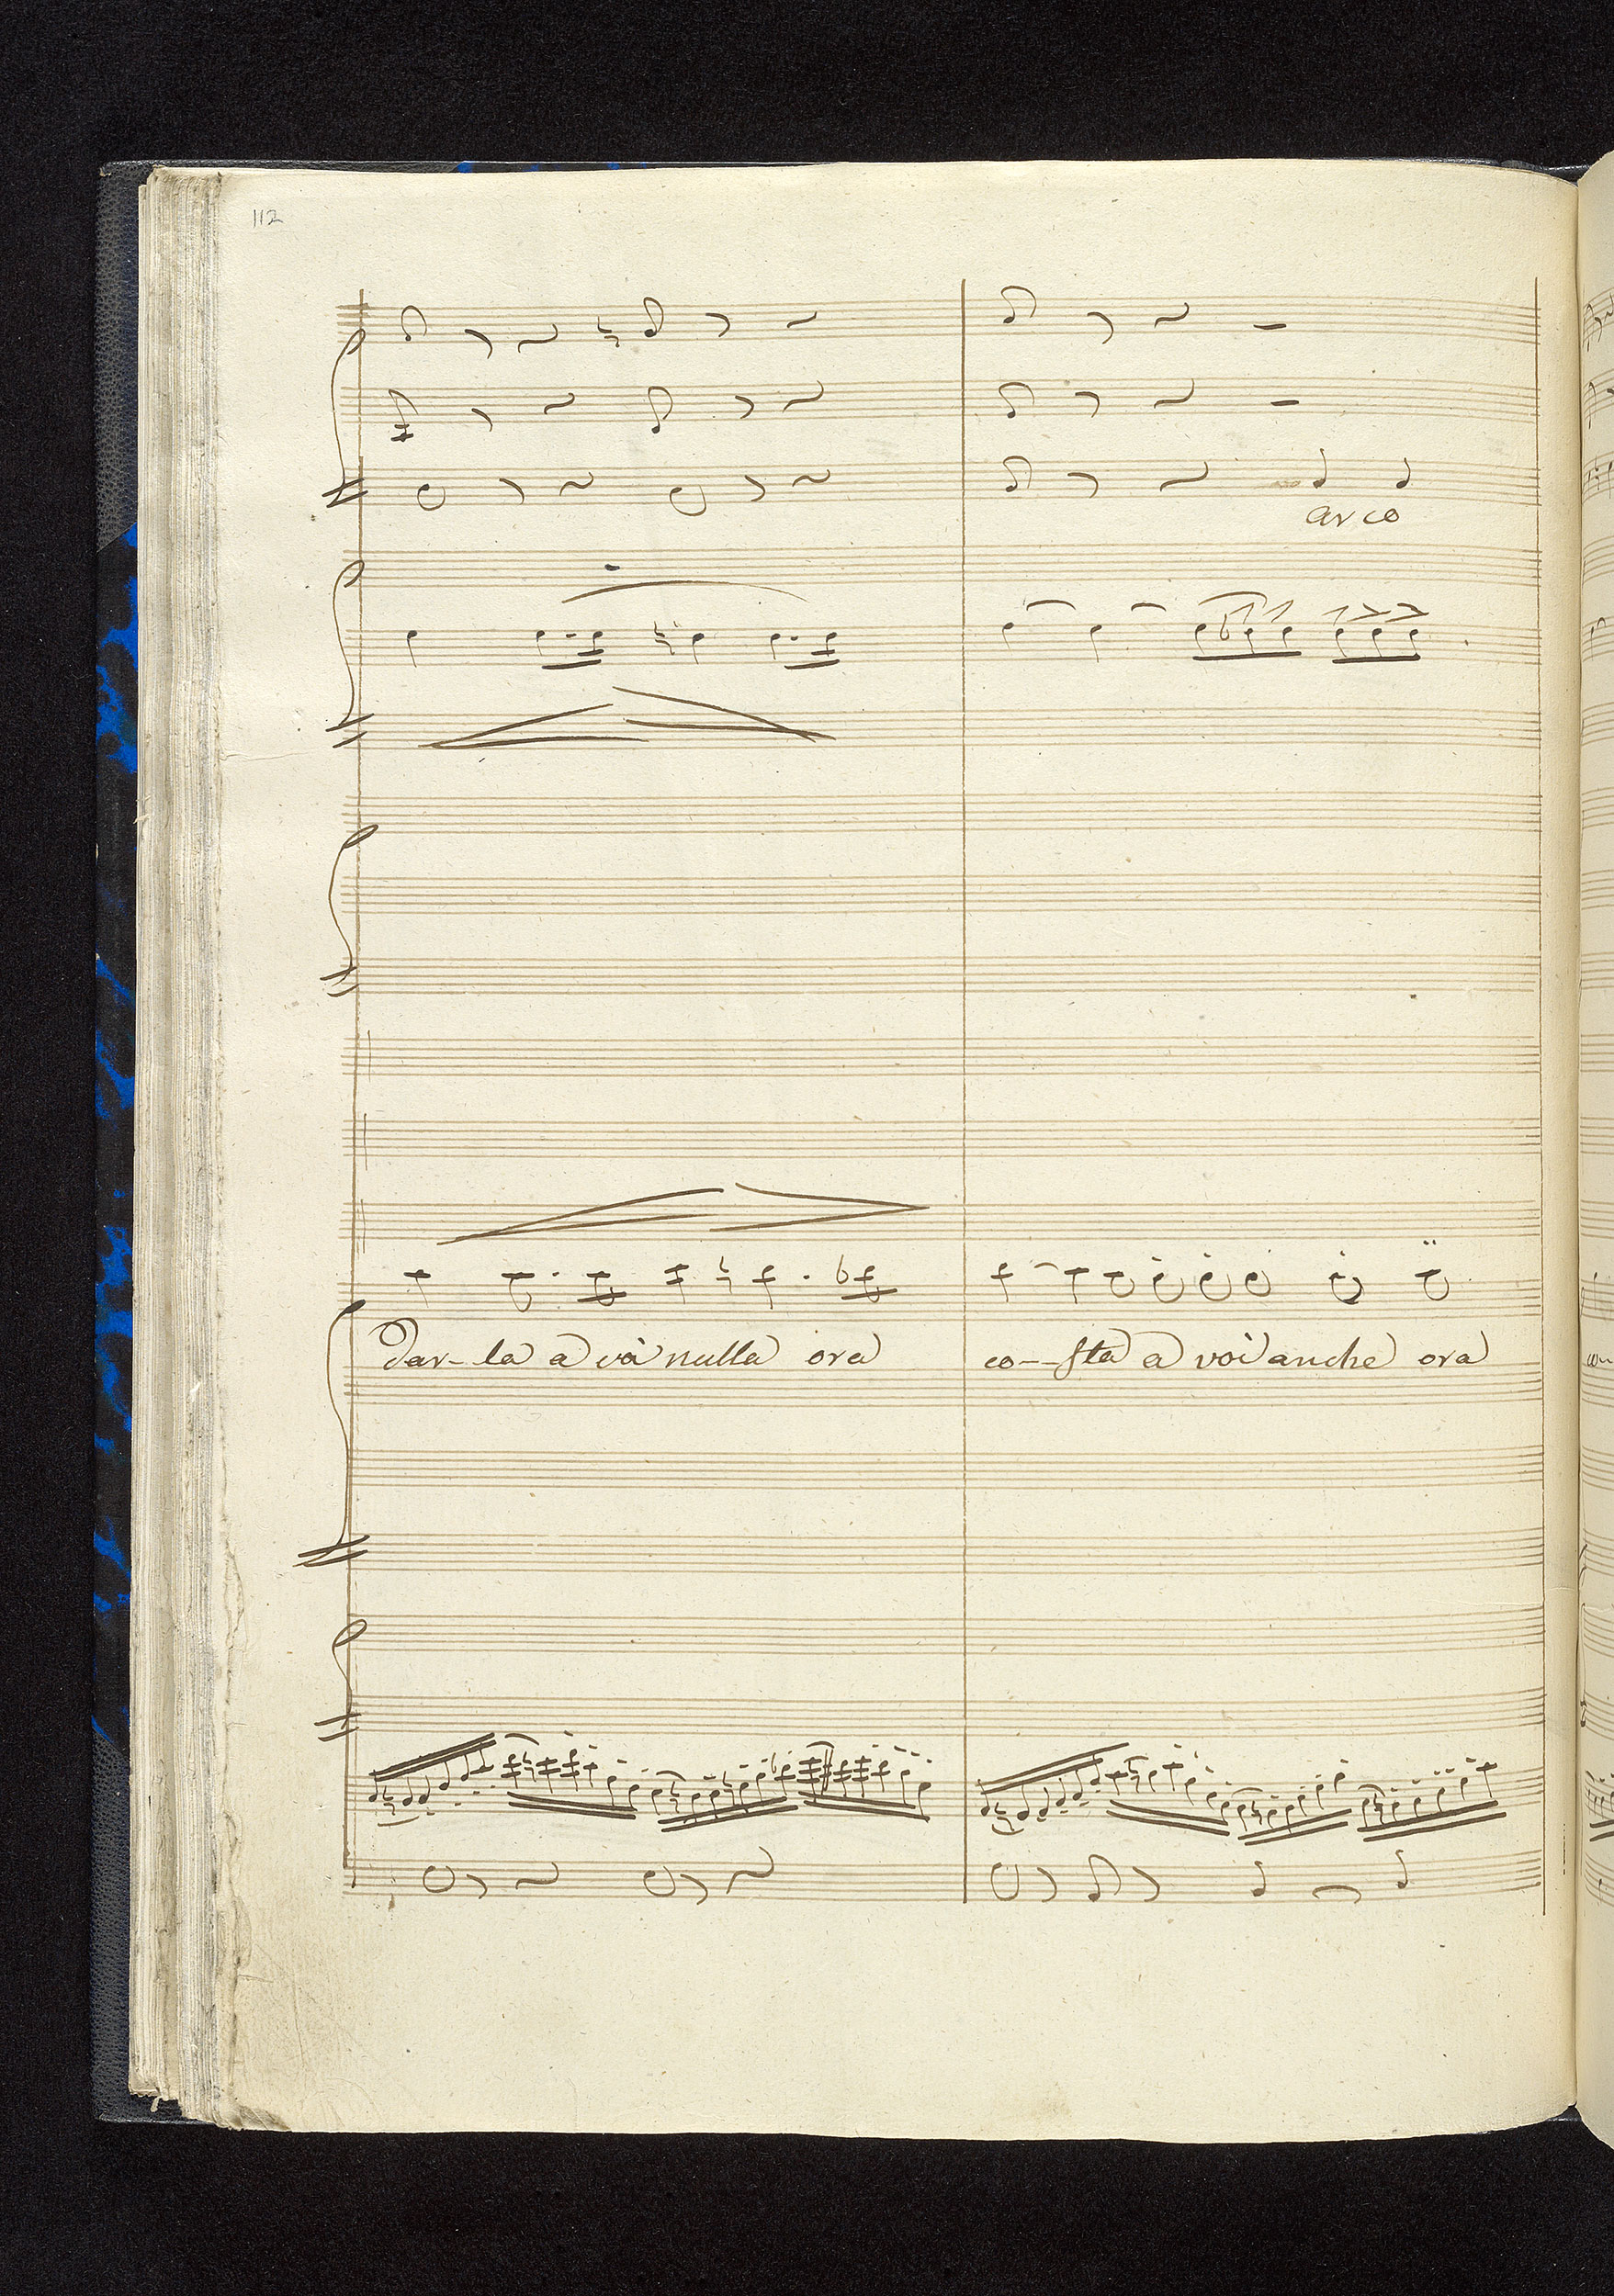 112
arco
dar-la a voi nulla ora co--sta a voi anche ora